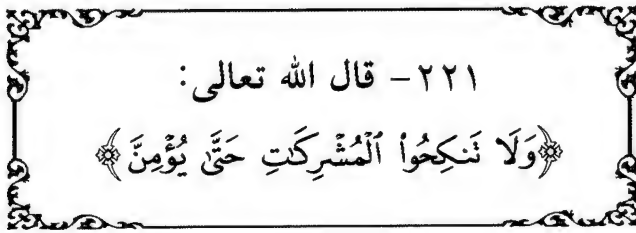 ٢٢١- قال الله تعالى:
﴿وَلَا تَنكِحُوا۟ ٱلْمُشْرِكَٰتِ حَتَّىٰ يُؤْمِنَّ﴾